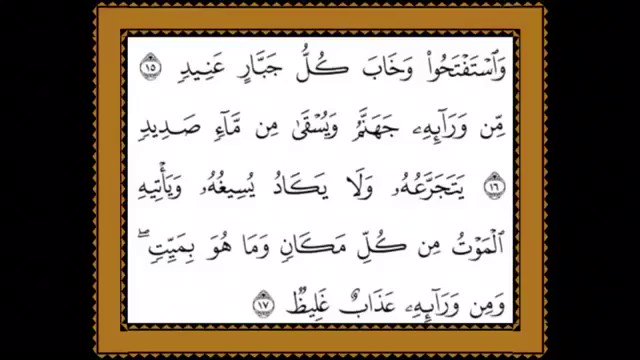 وَٱسْتَفْتَحُوا۟ وَخَابَ كُلُّ جَبَّارٍ عَنِيدٍ ١٥
مِّن وَرَآئِهِۦ جَهَنَّمُ وَيُسْقَىٰ مِن مَّآءٍ صَدِيدٍ
١٦ يَتَجَرَّعُهُۥ وَلَا يَكَادُ يُسِيغُهُۥ وَيَأْتِيهِ
ٱلْمَوْتُ مِن كُلِّ مَكَانٍ وَمَا هُوَ بِمَيِّتٍ ۖ
وَمِن وَرَآئِهِۦ عَذَابٌ غَلِيظٌ ١٧